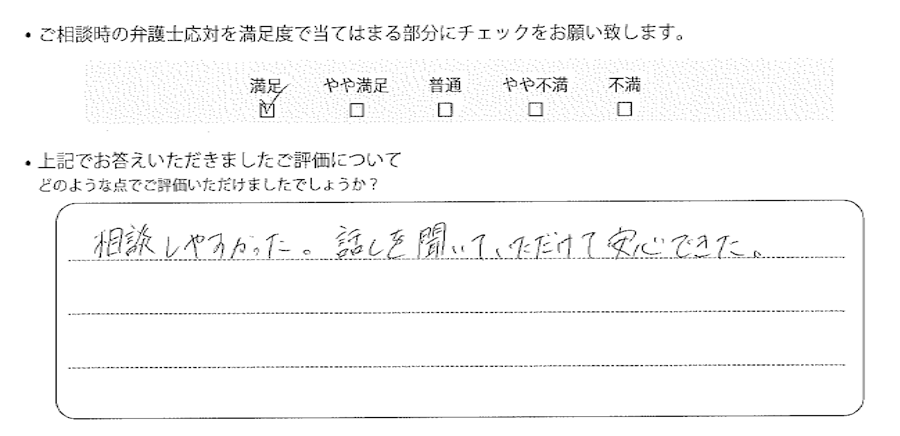 ・ご相談時の弁護士応対を満足度で当てはまる部分にチェックをお願い致します。
満足 やや満足 普通 やや不満 不満
☑ □ □ □ □
・上記でお答えいただきましたご評価について
どのような点でご評価いただけましたでしょうか？
相談しやすかった。話しを聞いていただけて安心できた。